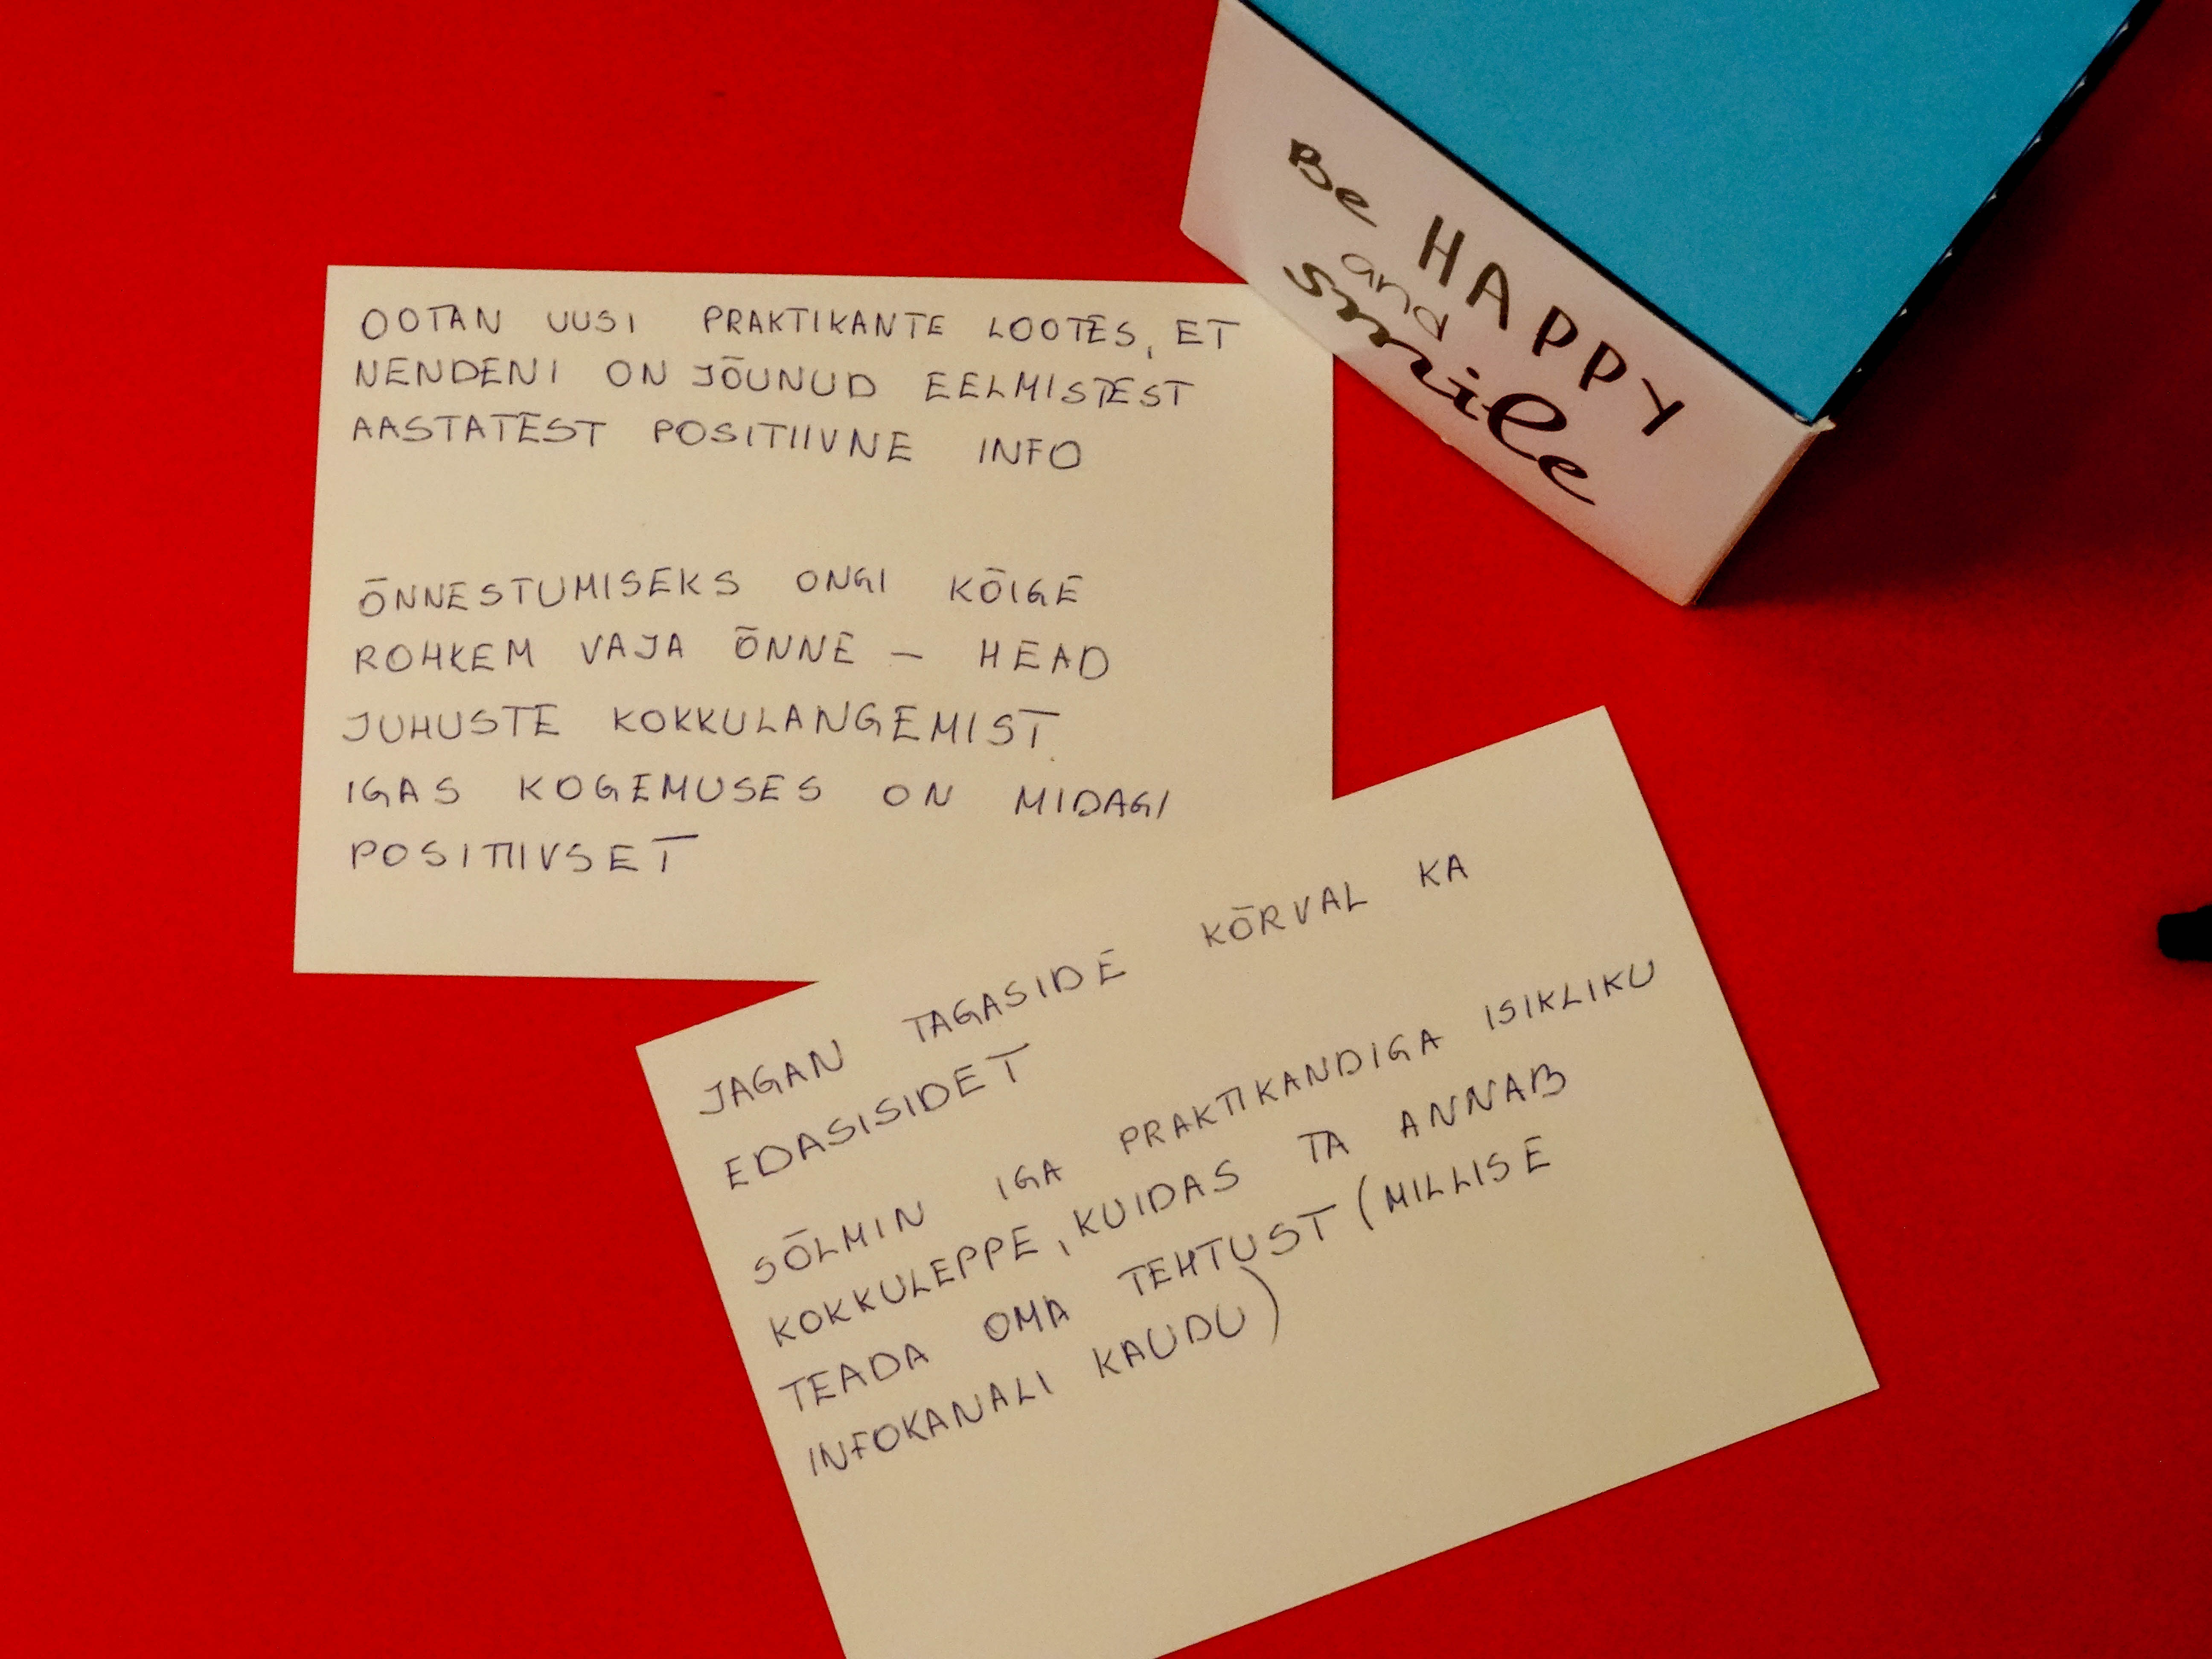 OOTAN UUSI PRAKTIKANTE LOOTES, ET
NENDENI ON JÕUNUD EELMISTEST
AASTATEST POSITIIVNE INFO
ÕNNESTUMISEKS ONGI KÕIGE
ROHKEM VAJA ÕNNE – HEAD
JUHUSTE KOKKULANGEMIST.
IGAS KOGEMUSES ON MIDAGI
POSITIIVSET
JAGAN TAGASIDE KÕRVAL KA
EDASISIDET
SÕLMIN IGA PRAKTIKANDIGA ISIKLIKU
KOKKULEPPE, KUIDAS TA ANNAB
TEADA OMA TEHTUST (MILLISE
INFOKANALI KAUDU)
Be HAPPY
and
smile